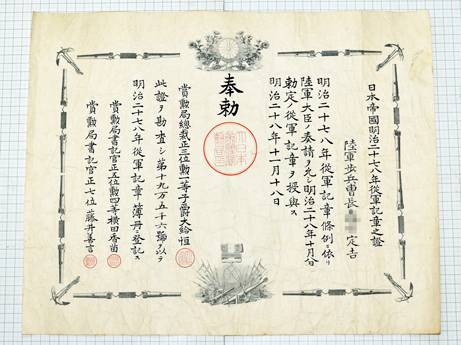 日本帝國明治二十七八年從軍記章之證
陸軍步兵曹長 定吉
明治二十七八年從軍記章條例ニ依リ
陸軍大臣ノ奏請ヲ允シ明治二十八年十月九日
勅定ノ從軍記章ヲ授與ス
明治二十八年十一月十八日
奉勅
賞勲局總裁正三位勲一等子爵大給恒
此證ヲ勘査シ第十九万五千六號ヲ以テ
明治二十七八年從軍記章簿冊ニ登記ス
賞勲局書記官正五位勲四等横田香苗
賞勲局書記官正七位藤井善言